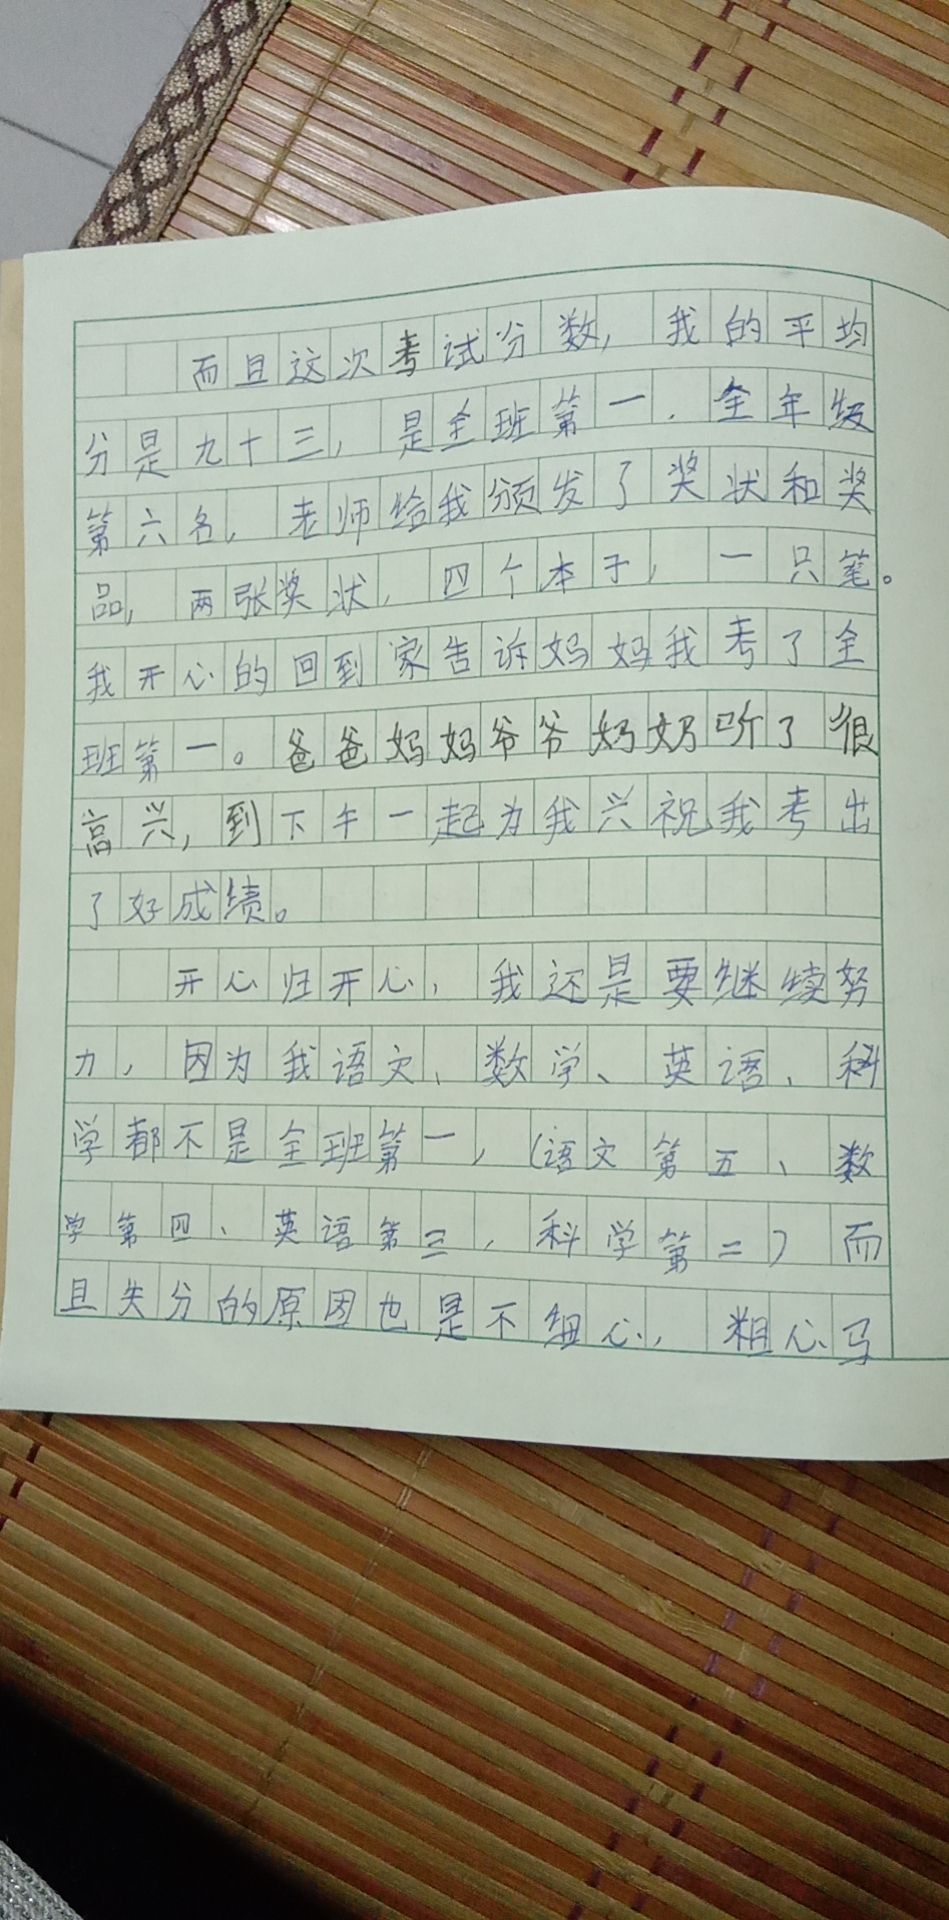 而且这次考试分数，我的平均
分是九十三，是全班第一．全年级
第六名，老师给我颁发了奖状和奖
品，两张奖状，四个本子，一只笔。
我开心的回到家告诉妈妈我考了全
班第一。爸爸妈妈爷爷奶奶听了很
高兴，到下午一起为我兴祝我考出
了好成绩。
开心归开心，我还是要继续努
力，因为我语文、数学、英语、科
学都不是全班第一，（语文第五、数
学第四、英语第三，科学第二）而
且失分的原因也是不细心，粗心马